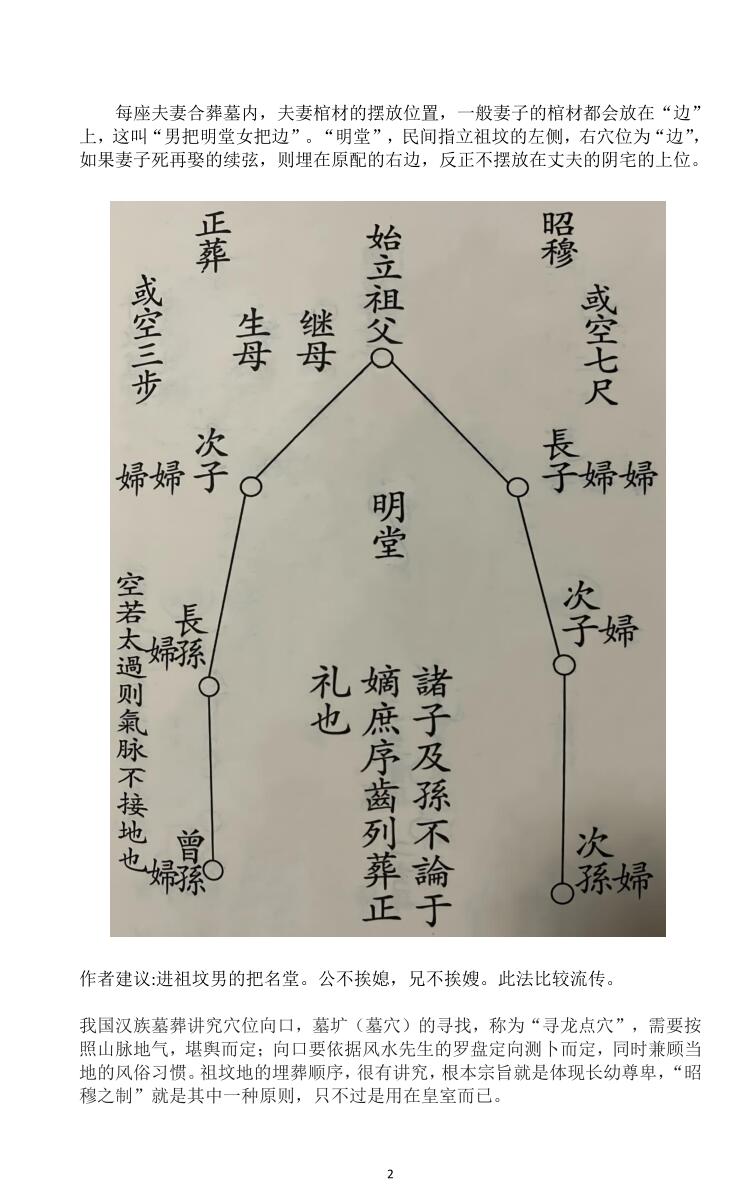 每座夫妻合葬墓内，夫妻棺材的摆放位置，一般妻子的棺材都会放在“边”
上，这叫“男把明堂女把边”。“明堂”，民间指立祖坟的左侧，右穴位为“边”，
如果妻子死再娶的续弦，则埋在原配的右边，反正不摆放在丈夫的阴宅的上位。
昭穆
正葬
始立祖父
或空七尺
继母
生母
或空三步
長子婦婦
次子
婦婦
明堂
次子婦
長孫
婦
空若太過则氣脉不接地也
諸子及孫不論于
嫡庶序齒列葬正
礼也
次孫婦
曾孫
婦
作者建议:进祖坟男的把名堂。公不挨媳，兄不挨嫂。此法比较流传。
我国汉族墓葬讲究穴位向口，墓圹（墓穴）的寻找，称为“寻龙点穴”，需要按
照山脉地气，堪舆而定；向口要依据风水先生的罗盘定向测卜而定，同时兼顾当
地的风俗习惯。祖坟地的埋葬顺序，很有讲究，根本宗旨就是体现长幼尊卑，“昭
穆之制”就是其中一种原则，只不过是用在皇室而已。
2